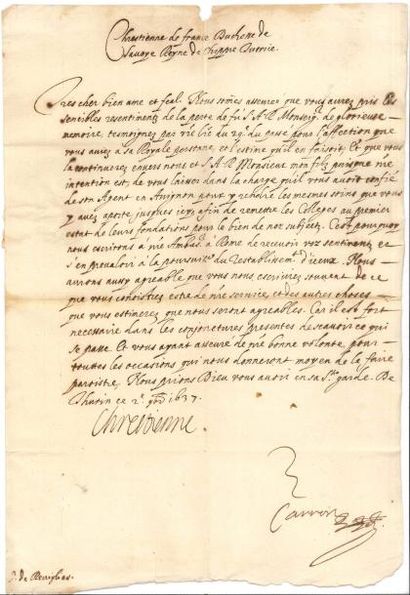 Chrestienne de france Duchesse de
Savoye Reyne de Chippre Tutrice
Tres cher bien amé et feal. Nous som̃es asseurée que vous aurez pris les
sensibles resentiments de la perte de fu S. A. R. Monseigr. de glorieuse
memoire, tesmoignez par vre lre du 29e du passé pour l'affection que
vous auez a sa Royale personne, et l'estime qu'il en faisoit. Et que vous
la continuerez enuers nous et S. A. R. Monsieur mon filz puisque nre
intention est, de vous laisser dans la charge qu'il vous auoit confié
de son Agent en Auignon pour y rendre les mesmes soins que vous
y auez aporté, jusques icy, afin de remettre les Colleges au premier
estat de leurs fondations pour le bien de noz subjects. C'est pourquoy
nous escriuons a nre Ambasr. a Rome de receuoir voz sentiments et
s'en preualoir à la poursuitte du restablissemt. d'iceux. Nous
aurons aussy agreable que vous nous escriuiez souuent de ce
que vous connoistrez estre de nre seruice et des autres choses
que vous estimerez que nous seront agreables. Car il est fort
necessaire dans les conjonctures presentes de scauoir ce qui
se passe. Et vous ayant asseuré de nre bonne volonté pour
toutes les occasions qui nous donneront moyen de la faire
paroistre, Nous prions Dieu vous auoir en sa Ste. garde. De
Thurin ce 2e. 9bre 1637.
Chrestienne.
Carron